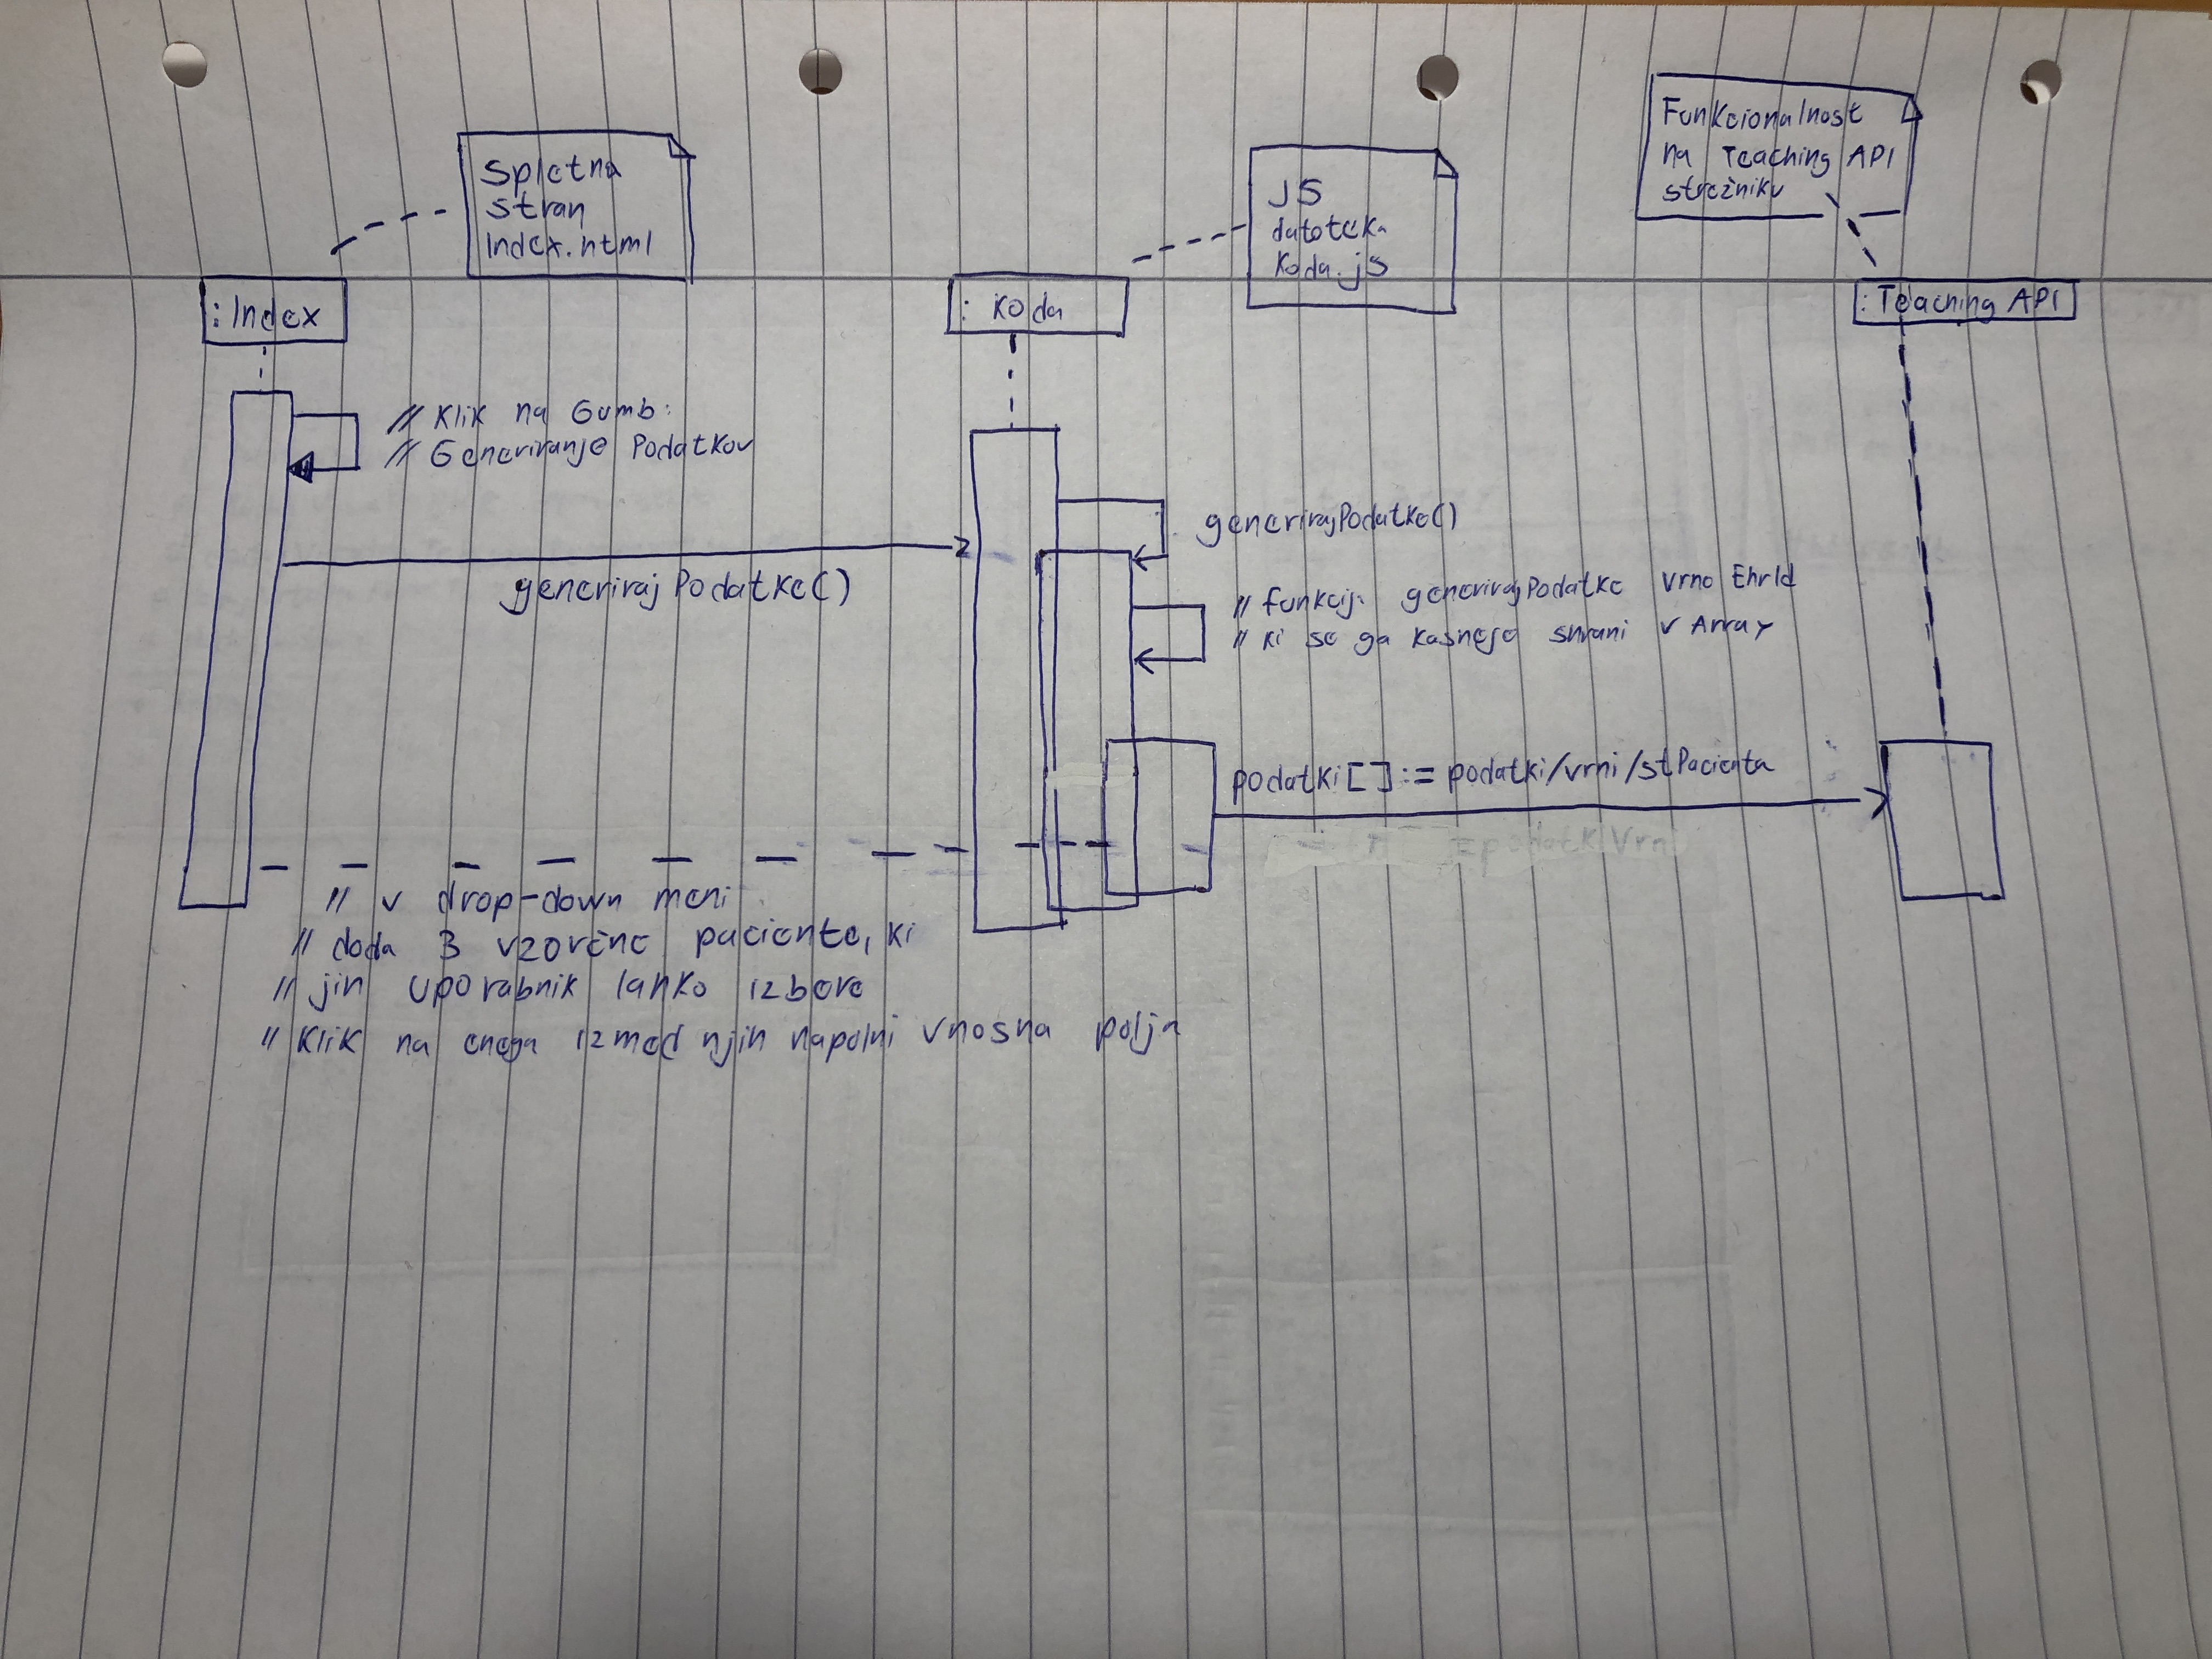 Spletna
stran
Index.html
JS
datoteka
Koda.js
Funkcionalnost
na Teaching API
strežniku
: Index
: Koda
: Teaching API
// Klik na Gumb:
// Generiranje Podatkov
generirajPodatke()
generirajPodatke()
// funkcija generirajPodatke vrne EhrId
// ki se ga kasneje shrani v Array
podatki[] := podatki/vrni/stPacienta
=podatkiVrni
// v drop-down meni
// doda 3 vzorčne paciente, ki
// jih uporabnik lahko izbere
// Klik na enega izmed njih napolni vnosna polja